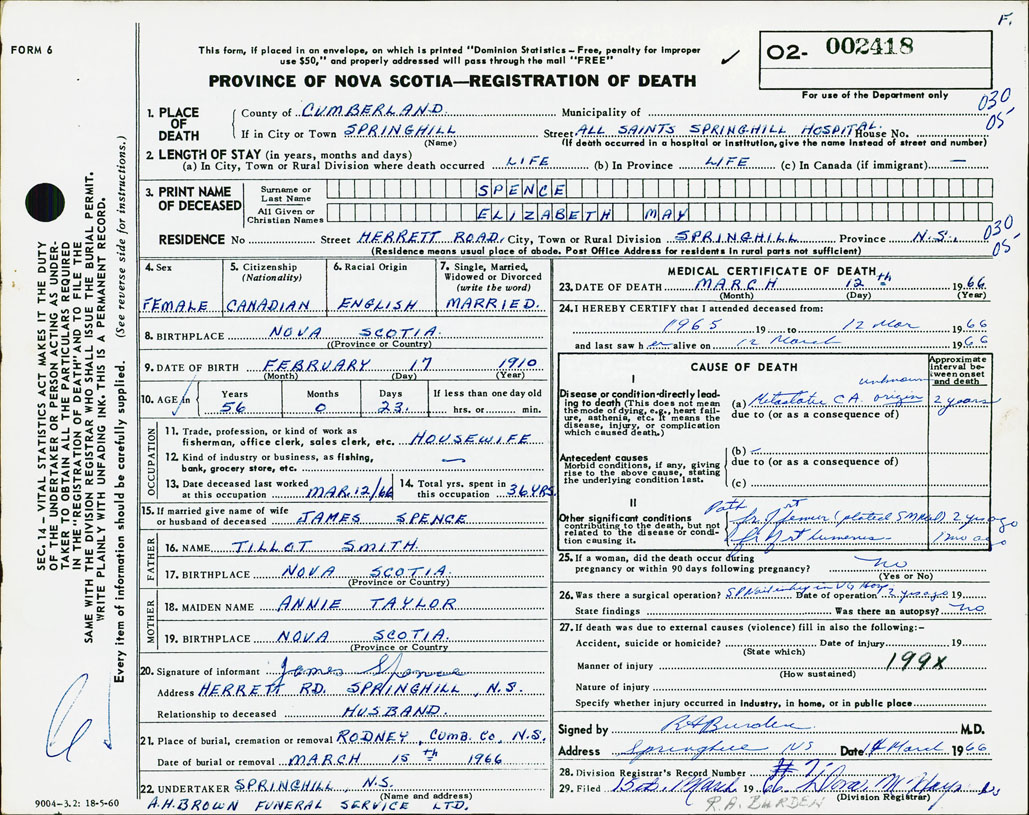 F.
FORM 6
This form, if placed in an envelope, on which is printed "Dominion Statistics – Free, penalty for improper
use $50," and properly addressed will pass through the mail "FREE"
✓
O2- 002418
PROVINCE OF NOVA SCOTIA—REGISTRATION OF DEATH
For use of the Department only
030
05-
1. PLACE OF DEATH
County of CUMBERLAND Municipality of
If in City or Town SPRINGHILL Street ALL SAINTS SPRINGHILL HOSPITAL. House No.
(Name) (If death occurred in a hospital or institution, give the name instead of street and number)
2. LENGTH OF STAY (in years, months and days)
(a) In City, Town or Rural Division where death occurred LIFE (b) In Province LIFE (c) In Canada (if immigrant) —
3. PRINT NAME OF DECEASED
Surname or Last Name SPENCE
All Given or Christian Names ELIZABETH MAY
RESIDENCE No Street HERRETT ROAD, City, Town or Rural Division SPRINGHILL Province N.S.,
030
05-
(Residence means usual place of abode. Post Office Address for residents in rural parts not sufficient)
4. Sex
FEMALE
5. Citizenship (Nationality)
CANADIAN
6. Racial Origin
ENGLISH
7. Single, Married, Widowed or Divorced (write the word)
MARRIED.
8. BIRTHPLACE NOVA SCOTIA.
(Province or Country)
9. DATE OF BIRTH FEBRUARY 17 1910
(Month) (Day) (Year)
10. AGE in Years Months Days If less than one day old
56 0 23. hrs. or min.
OCCUPATION
11. Trade, profession, or kind of work as
fisherman, office clerk, sales clerk, etc. HOUSEWIFE
12. Kind of industry or business, as fishing,
bank, grocery store, etc. —
13. Date deceased last worked
at this occupation MAR. 12/66
14. Total yrs. spent in
this occupation 36 YRS.
15. If married give name of wife
or husband of deceased JAMES SPENCE
FATHER
16. NAME TILLOT SMITH.
17. BIRTHPLACE NOVA SCOTIA.
(Province or Country)
MOTHER
18. MAIDEN NAME ANNIE TAYLOR
19. BIRTHPLACE NOVA SCOTIA.
(Province or Country)
20. Signature of informant James Spence
Address HERRETT RD. SPRINGHILL, N.S.
Relationship to deceased HUSBAND.
21. Place of burial, cremation or removal RODNEY, CUMB. CO, N.S.
Date of burial or removal MARCH 15th 1966
22. UNDERTAKER SPRINGHILL, N.S.
(Name and address)
A.H. BROWN FUNERAL SERVICE LTD.
9004-3.2: 18-5-60
MEDICAL CERTIFICATE OF DEATH
23. DATE OF DEATH MARCH 12th 1966
(Month) (Day) (Year)
24. I HEREBY CERTIFY that I attended deceased from:
1965 19 to 12 Mar 1966
and last saw her alive on 12 March 1966
CAUSE OF DEATH
Approximate interval between onset and death
I
Disease or condition directly leading to death (This does not mean the mode of dying, e.g., heart failure, asthenia, etc. It means the disease, injury, or complication which caused death.)
unknown
(a) Metastatic C.A. origin 2 years
due to (or as a consequence of)
Antecedent causes
Morbid conditions, if any, giving rise to the above cause, stating the underlying condition last.
(b)
due to (or as a consequence of)
(c)
II
Other significant conditions contributing to the death, but not related to the disease or condition causing it.
Path rt
femur (plated 2 yrs ago
rt humerus 1 mo ago
25. If a woman, did the death occur during
pregnancy or within 90 days following pregnancy? no
(Yes or No)
26. Was there a surgical operation? Date of operation 2 yrs ago 19
State findings Was there an autopsy? no
27. If death was due to external causes (violence) fill in also the following:–
Accident, suicide or homicide? Date of injury 19
(State which)
Manner of injury 199x
(How sustained)
Nature of injury
Specify whether injury occurred in industry, in home, or in public place
Signed by R A Burden M.D.
Address Springhill NS Date 14 March 1966
28. Division Registrar's Record Number # 7
29. Filed 15th March 1966
(Division Registrar)
R.A. BURDEN
SEC. 14 – VITAL STATISTICS ACT MAKES IT THE DUTY
OF THE UNDERTAKER OR PERSON ACTING AS UNDER-
TAKER TO OBTAIN ALL THE PARTICULARS REQUIRED
IN THE "REGISTRATION OF DEATH" AND TO FILE THE
SAME WITH THE DIVISION REGISTRAR WHO SHALL ISSUE THE BURIAL PERMIT.
WRITE PLAINLY WITH UNFADING INK. THIS IS A PERMANENT RECORD.
Every item of information should be carefully supplied. (See reverse side for instructions.)